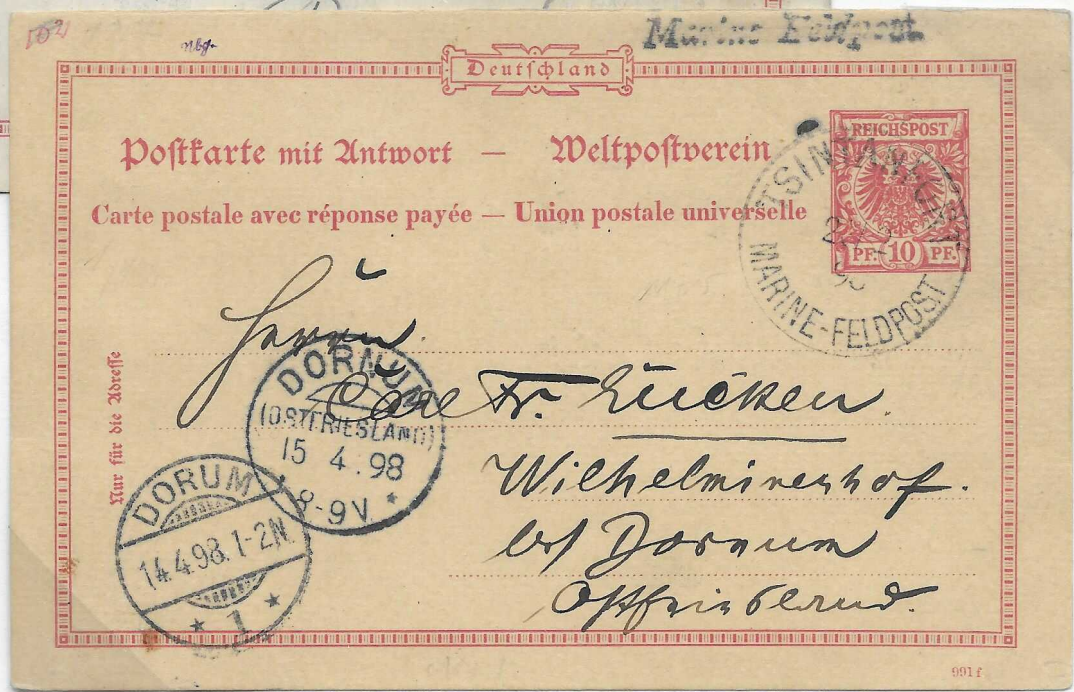 102
Nbg.
Marine Feldpost.
Deutschland
Postkarte mit Antwort — Weltpostverein
Carte postale avec réponse payée — Union postale universelle
REICHSPOST
PF. 10 PF.
MARINE-FELDPOST
Nur für die Adresse
Herrn
Fr. Lücken.
Wilhelminenhof.
bei Dornum
Ostfriesland.
DORNUM
(OSTFRIESLAND)
15 4.98
8-9V *
DORUM
14.4.98. 1-2N.
* 1 *
991 f